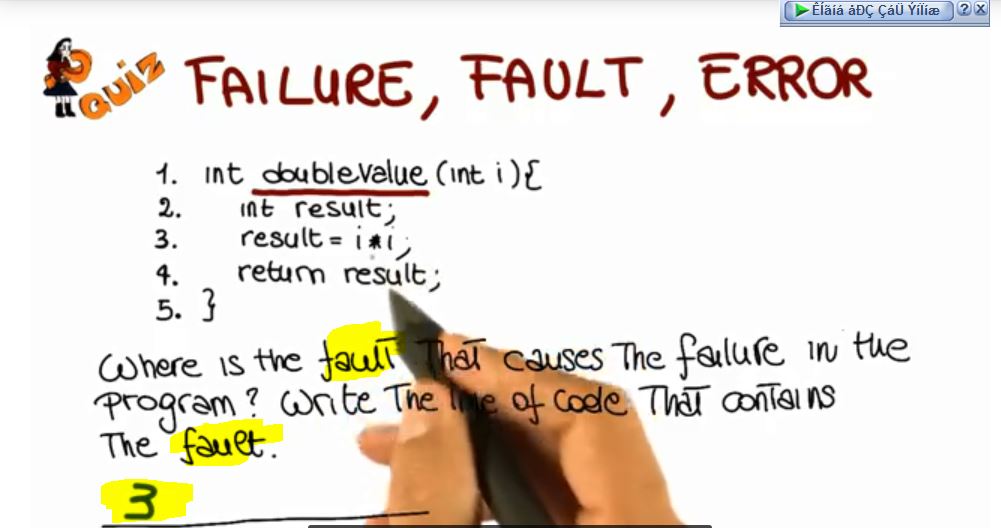 Êíãíá åÐÇ ÇáÜ ÝíÏíæ
QUIZ
FAILURE, FAULT, ERROR
1. int doubleValue (int i){
2. int result;
3. result = i*i;
4. return result;
5. }
Where is the fault that causes the failure in the
program? Write the line of code that contains
the fault.
3